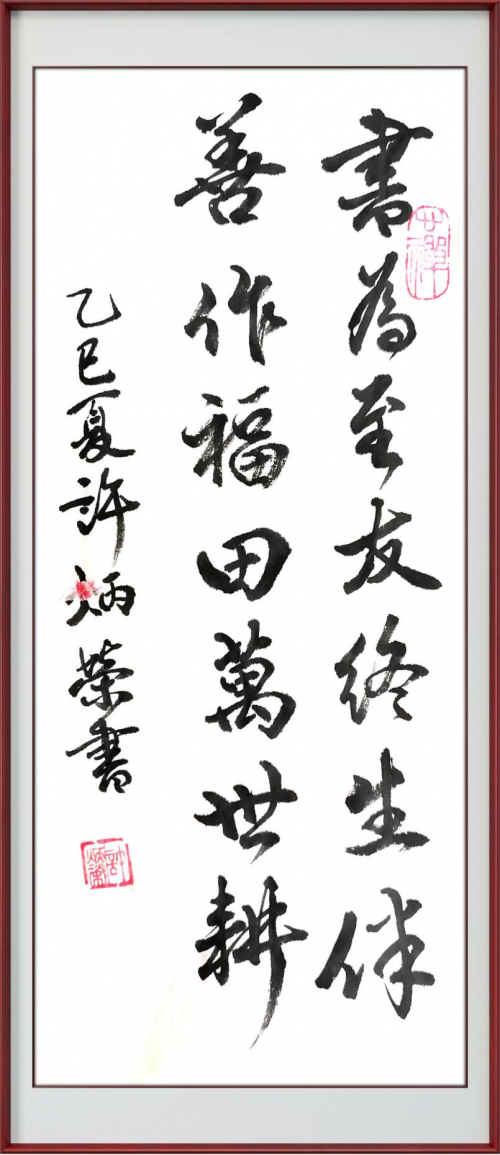 書為至友終生伴
善作福田萬世耕
乙巳夏許炳榮書